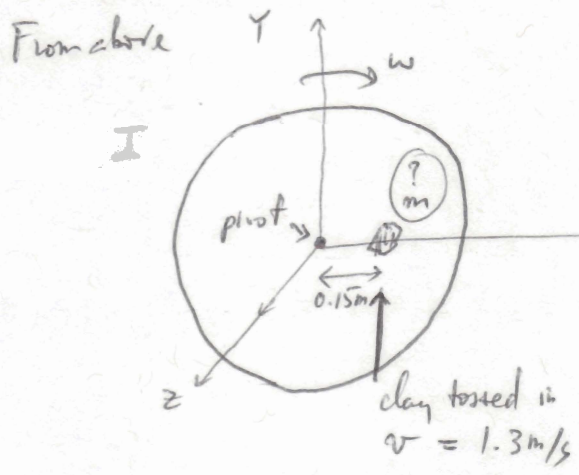 From above
Y
ω
I
?
m
pivot
0.15m
Z
clay tossed in
v = 1.3 m/s